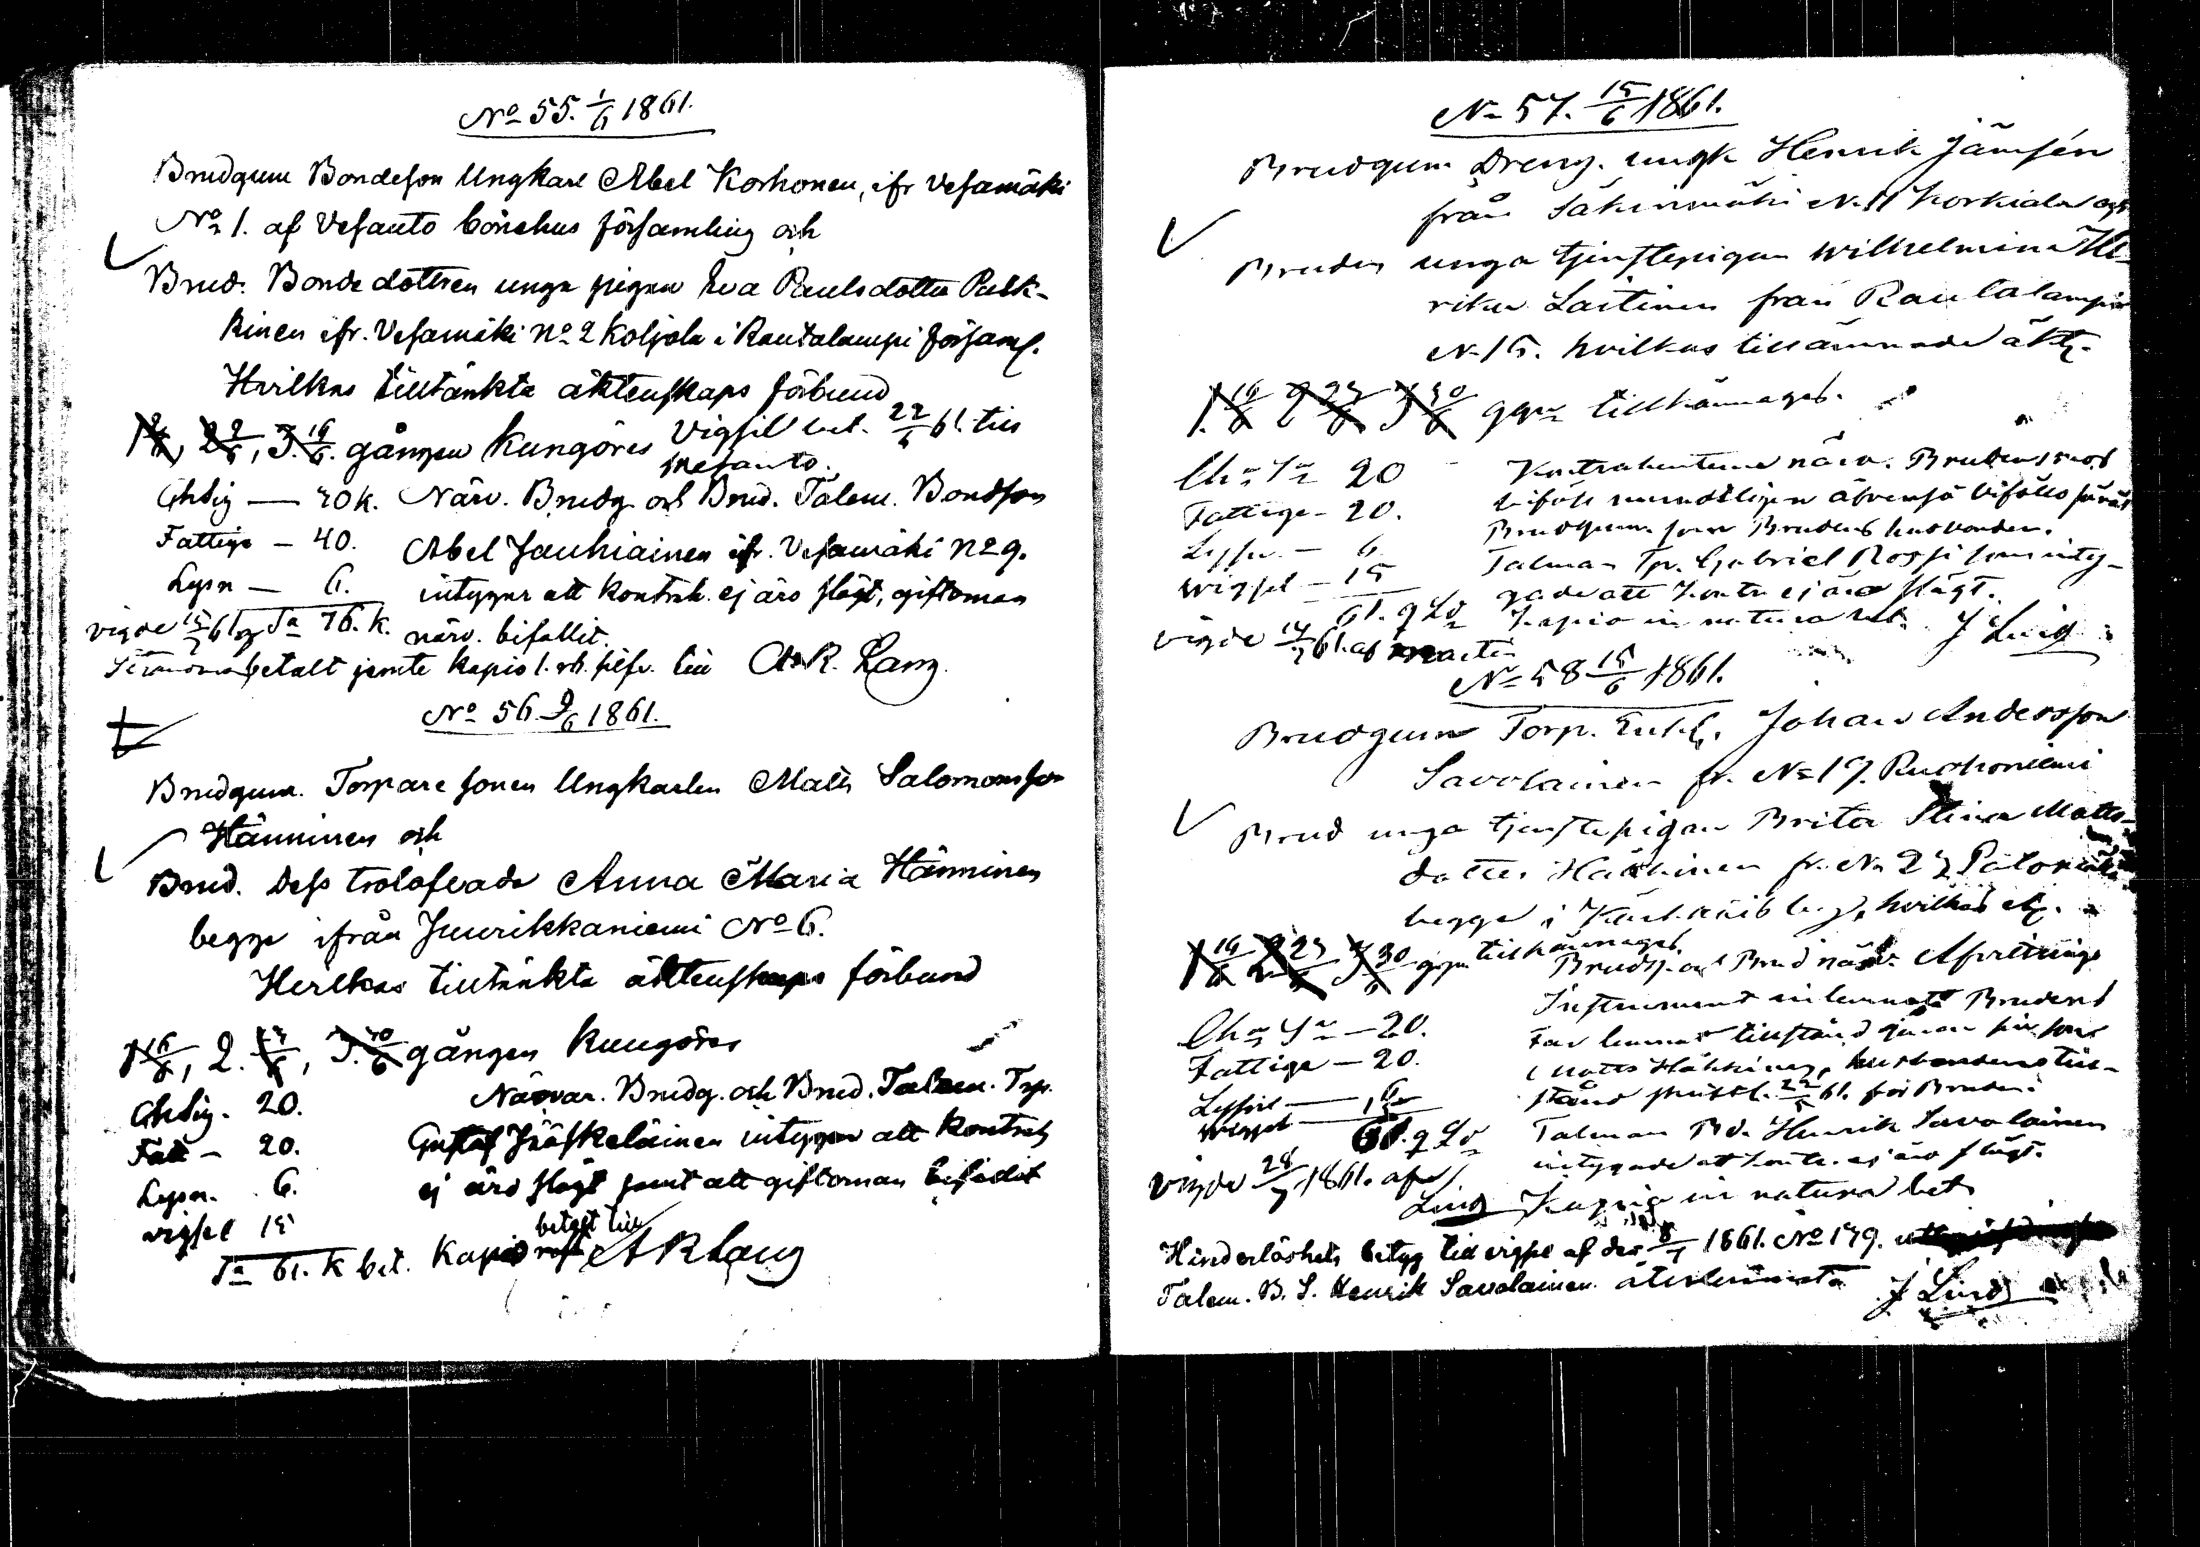 No 55. 1/6 1861.
Brudgum Bondeson Ungkarl Abel Korhonen, ifr Vesamäki
No 1. af Vesanto bönehus församling och
Brud. Bonde dottren unga pigan Eva Paulsdotter Pulk-
kinen ifr. Vesamäki No 2 Koljola i Rautalampi församl.
Hvilkas tilltänkta äktenskaps förbund
1. 2/6, 2. 9/6, 3. 16/6. gången kungöres Vigsel bet. 22/6 61. till
Vesanto.
Chtig — 20 k. Närv. Brudg. och Brud. Talem. Bondson
Fattige — 40. Abel Jauhiainen ifr. Vesamäki No 9.
Lysn — 6. intygar att kontrah. ej äro slägt, giftoman
vigde 15/7 61 Sa 76. k. närv. bifallit.
betalt jemte kapio 1. rb. silfv. till A. R. Lang.
No 56. 9/6 1861.
Brudgum. Torpare sonen Ungkarlen Matts Salomonsson
Hänninen och
Brud. Dess trolofvade Anna Maria Hänninen
begge ifrån Juurikkaniemi No 6.
Hvilkas tilltänkta äktenskaps förbund
1. 16/6, 2. 23/6, 3. 30/6 gången kungöres
Chtig. 20. Närvar. Brudg. och Brud. Talem. Trp.
Fatt — 20. Gustaf Jääskeläinen intygar att kontrah
Lysn. 6. ej äro slägt samt att giftoman bifallit
vigsel 15
betalt till
Sa 61. k bet. Kapio A R Lang
No 57. 15/6 1861.
Brudgum Dreng. ungk Henrik Jämsén
från Säkinmäki No 11 Korkiala och
Bruden unga tjenstepigan Wilhelmina He-
rika Laitinen från Rautalampi
No 15. hvilkas tillämnade äkt.
1. 16/6 2. 23/6 3. 30/6 ggn tillkännages.
20 Kontrahenterne närv. Brudens mod
Fattige — 20. bifall mundtligen äfvenså bifölls
Lysn. — 6 Brudgum som Brudens husbonder.
wigsel — 15 Talman Tp. Gabriel Rossi som inty-
61. gade att kontr ej äro slägt.
vigde 14/7 61. af Kapio in natura bet. J Lind
No 58 15/6 1861.
Brudgum Torp. Enkl. Johan Andersson
Savolainen fr. No 19. Ruohoniemi
Brud unga tjenstepigan Brita Stina Matts-
dotter Häkkinen fr. No 27
begge i hvilkas
1. 16/6 2. 23/6 3. 30/6 ggn tillkännages.
Brudg. och Brud närv. Afvittrings
Instrument inlemnats Brudens
20. Far lemnar tillstånd genom sin son
Fattige — 20. Matts Häkkinen, husbondens till-
Lysn — 6 stånd skriftl. 22/5 61. för Bruden.
wigsel — 15
61. Talman Bd. Henrik Savolainen
intygade att kontr. ej äro slägt.
vigde 28/7 1861. af
Lind Kapio in natura bet
Hinderlöshets betyg till vigsel af den 8/7 1861. No 179.
Talem. B. S. Henrik Savolainen återlemnats J Lind